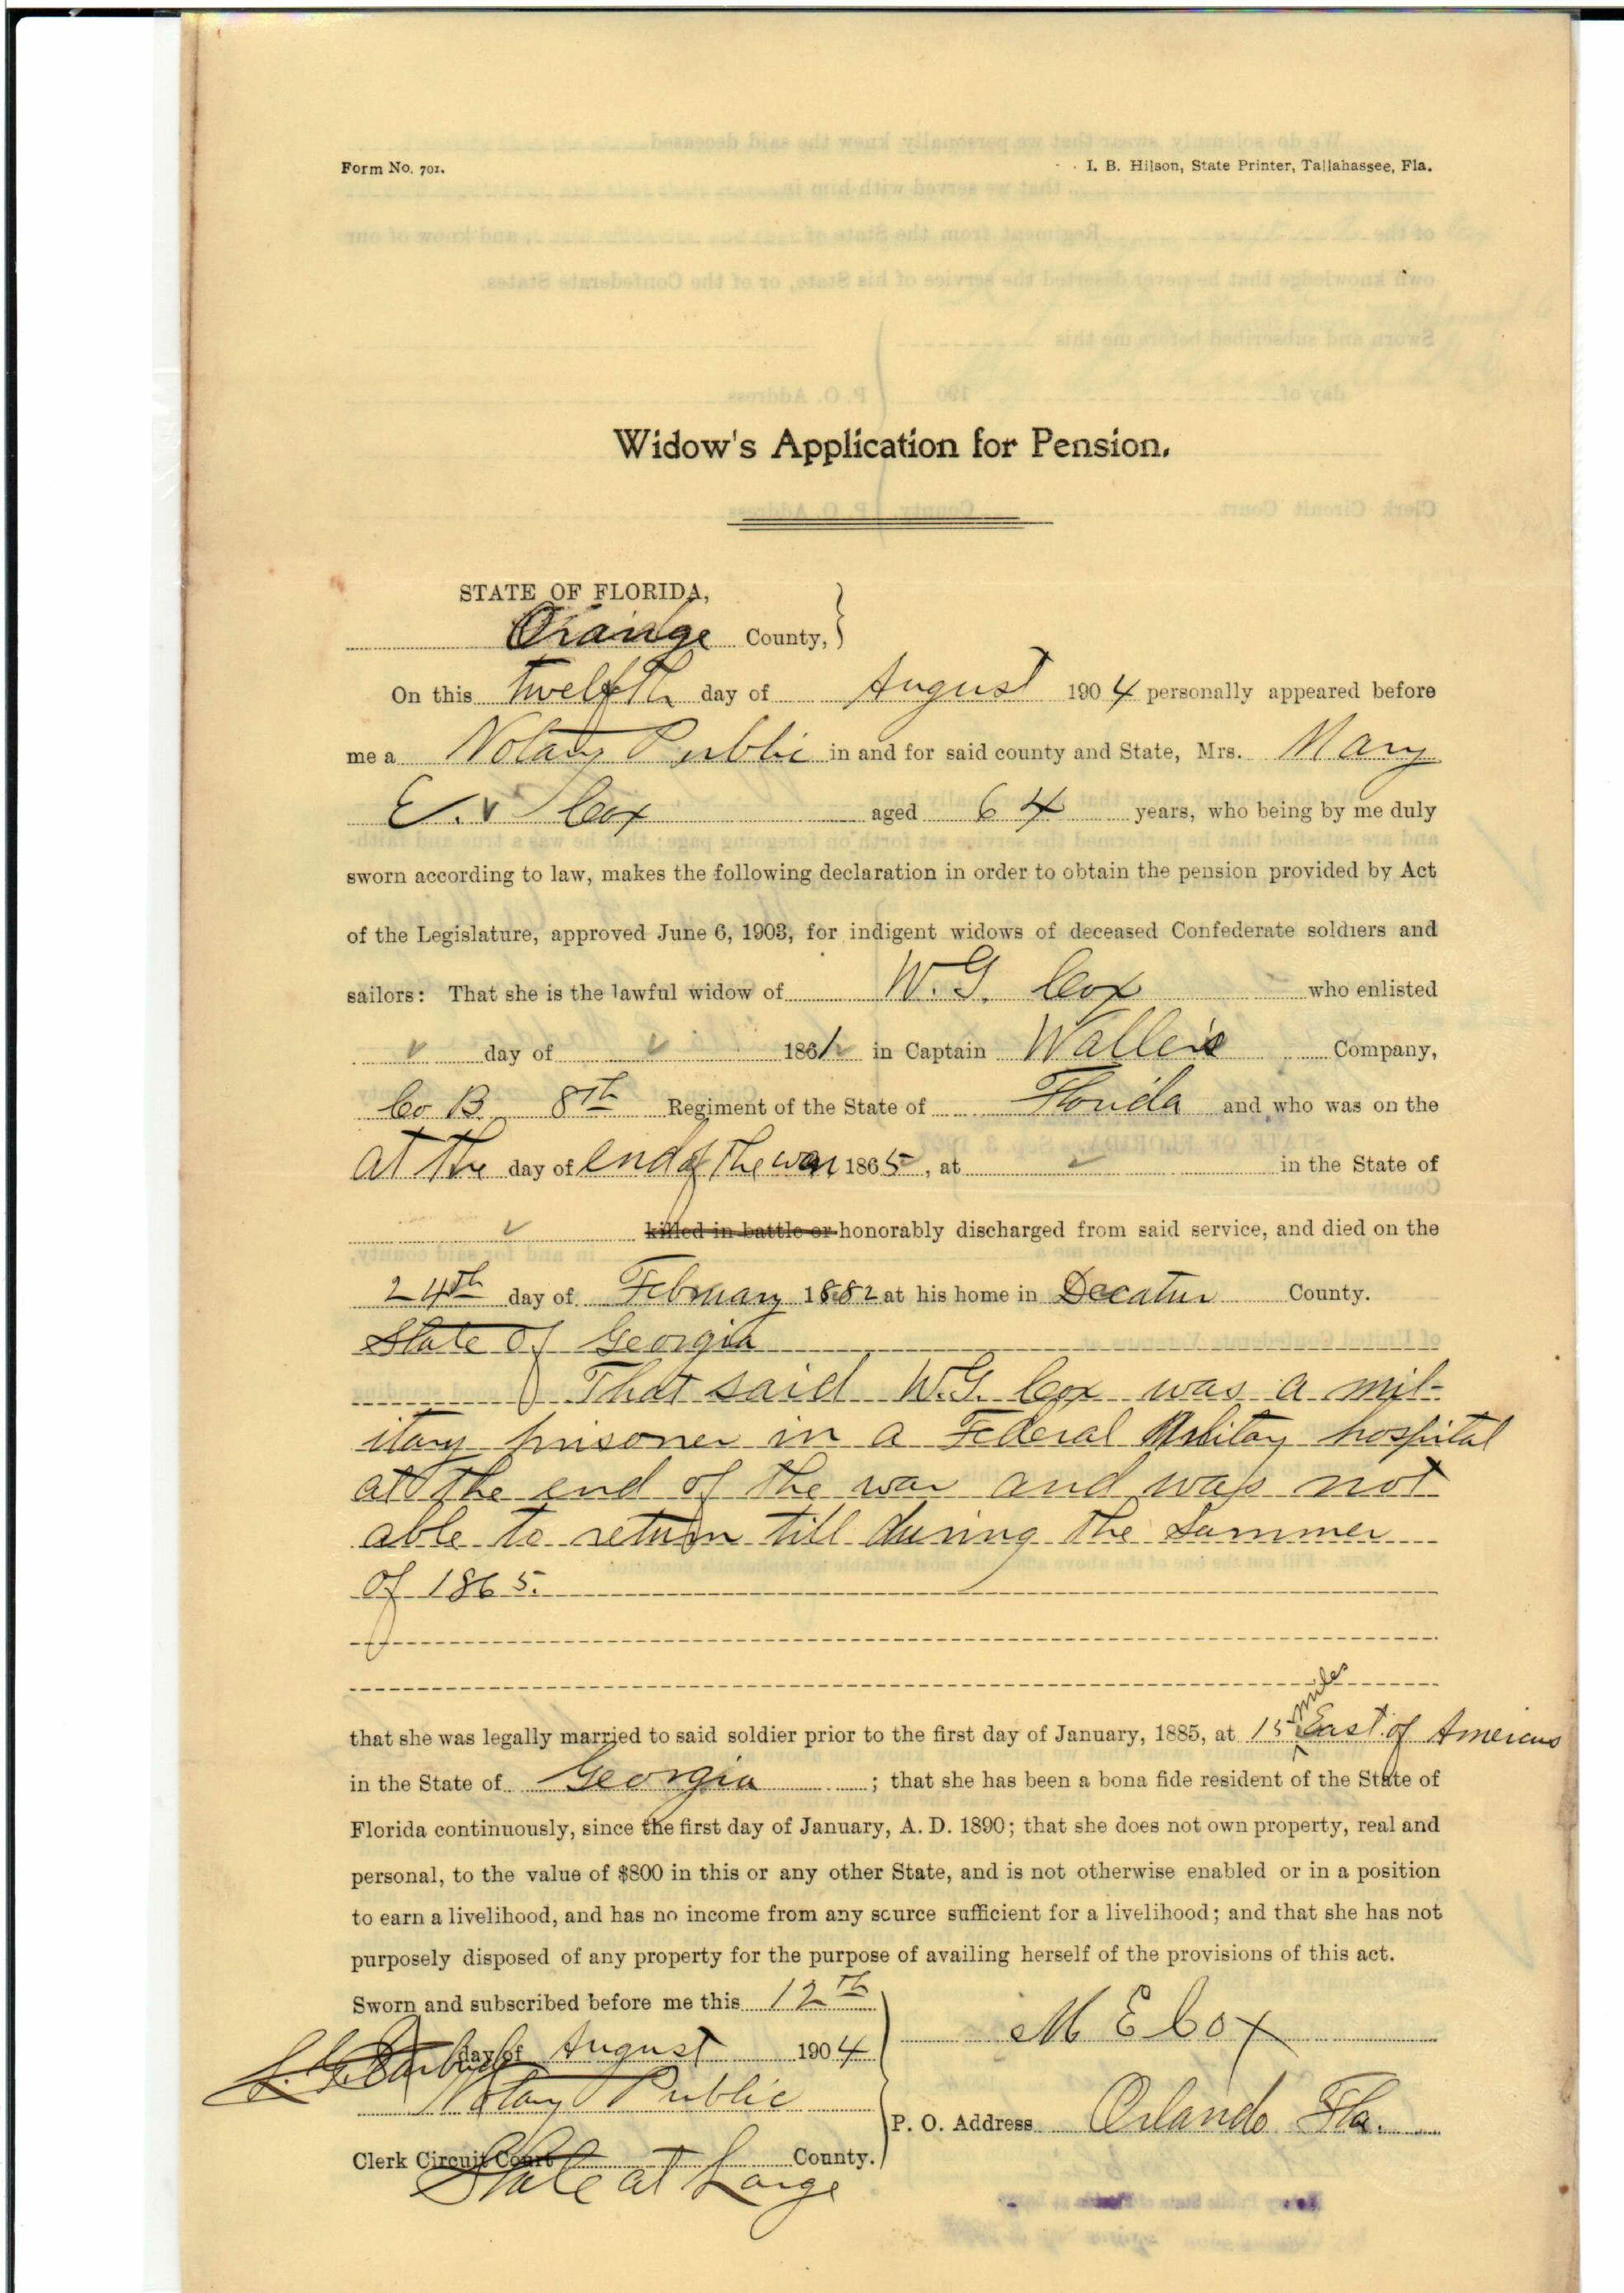 Form No. 701.
I. B. Hilson, State Printer, Tallahassee, Fla.
Widow's Application for Pension.
STATE OF FLORIDA,
Orange County,
On this twelfth day of August 1904 personally appeared before
me a Notary Public in and for said county and State, Mrs. Mary
E. Cox aged 64 years, who being by me duly
sworn according to law, makes the following declaration in order to obtain the pension provided by Act
of the Legislature, approved June 6, 1903, for indigent widows of deceased Confederate soldiers and
sailors: That she is the lawful widow of W. G. Cox who enlisted
day of 186 in Captain Waller's Company,
Co B 8th Regiment of the State of Florida and who was on the
at the day of end of the war 1865, at in the State of
killed in battle or honorably discharged from said service, and died on the
24th day of February 1882 at his home in Decatur County.
State of Georgia
That said W. G. Cox was a mil-
itary prisoner in a Federal Military hospital
at the end of the war and was not
able to return till during the Summer
of 1865.
that she was legally married to said soldier prior to the first day of January, 1885, at 15 miles East of Americus
in the State of Georgia; that she has been a bona fide resident of the State of
Florida continuously, since the first day of January, A. D. 1890; that she does not own property, real and
personal, to the value of $800 in this or any other State, and is not otherwise enabled or in a position
to earn a livelihood, and has no income from any source sufficient for a livelihood; and that she has not
purposely disposed of any property for the purpose of availing herself of the provisions of this act.
Sworn and subscribed before me this 12th
day of August 1904
M E Cox
Notary Public
P. O. Address Orlando Fla.
Clerk Circuit Court County.
State at Large